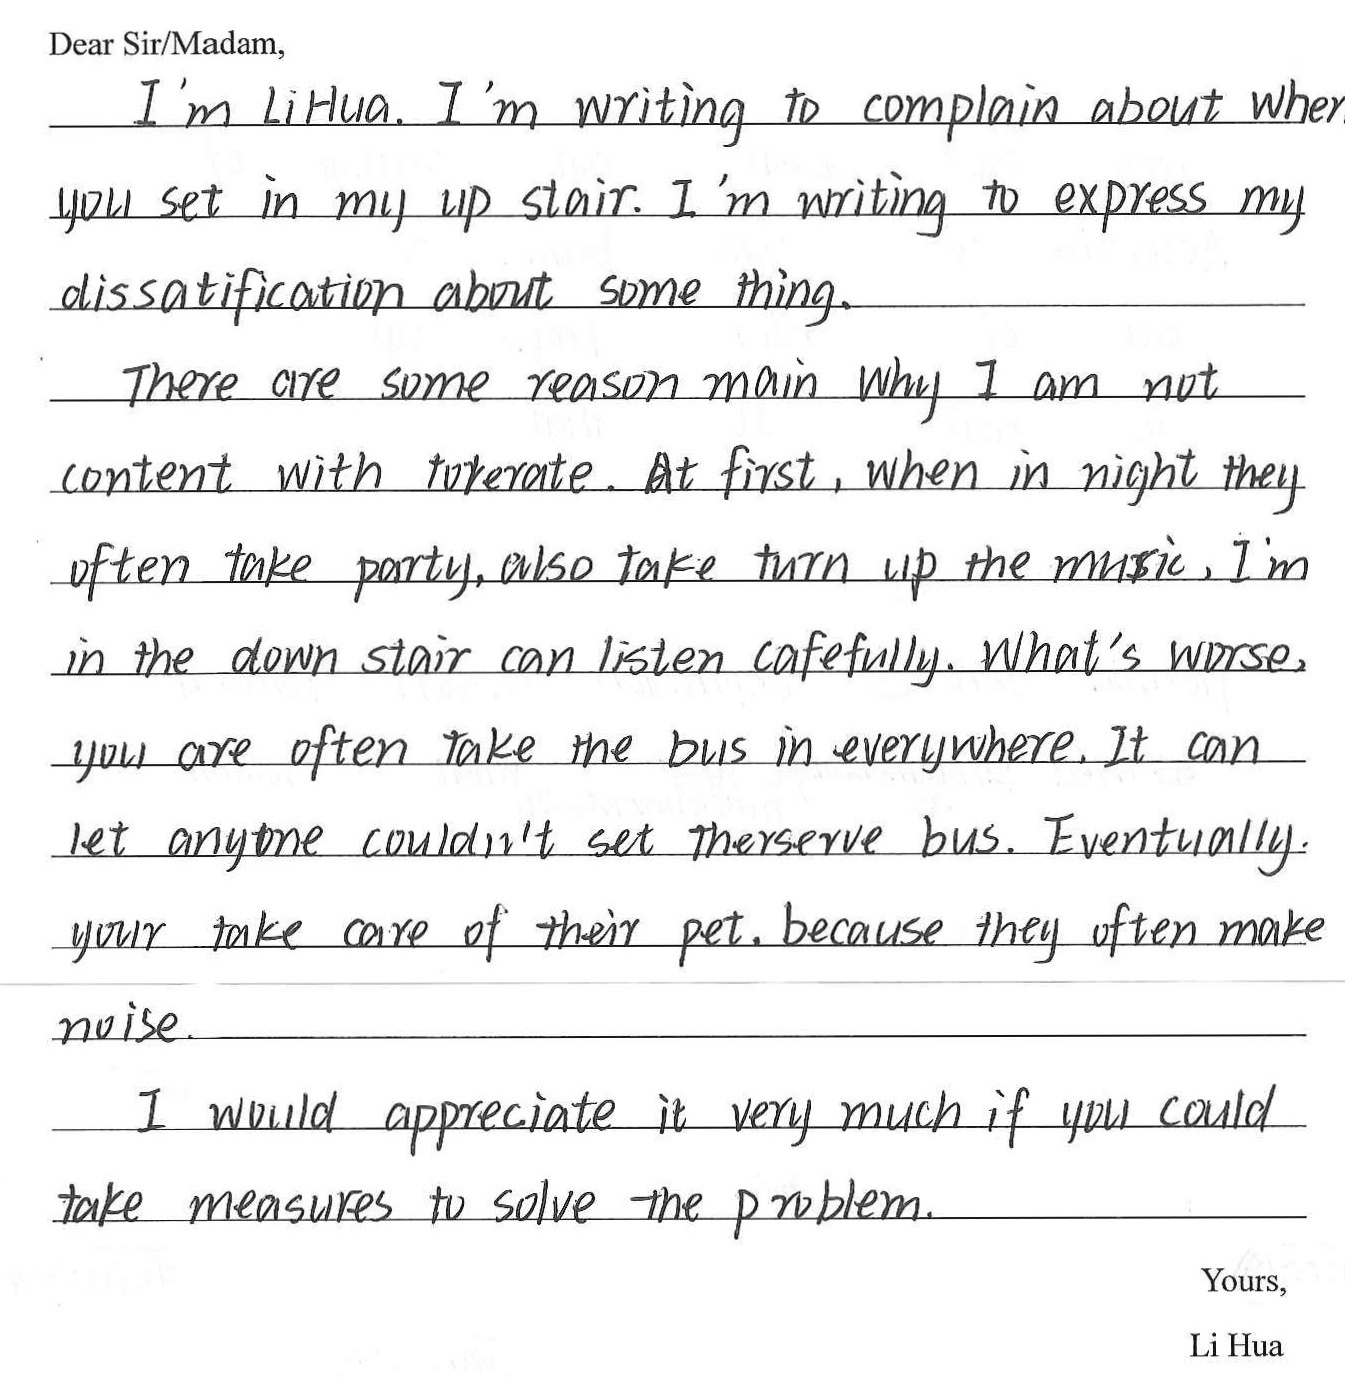 Dear Sir/Madam,
I'm LiHua. I'm writing to complain about wher
you set in my up stair. I'm writing to express my
dissatification about some thing.
There are some reason main why I am not
content with torerate. At first, when in night they
often take party, also take turn up the music, I'm
in the down stair can listen cafefully. What's worse,
you are often take the bus in everywhere. It can
let anyone couldn't set therserve bus. Eventually.
your take care of their pet. because they often make
noise.
I would appreciate it very much if you could
take measures to solve the problem.
Yours,
Li Hua